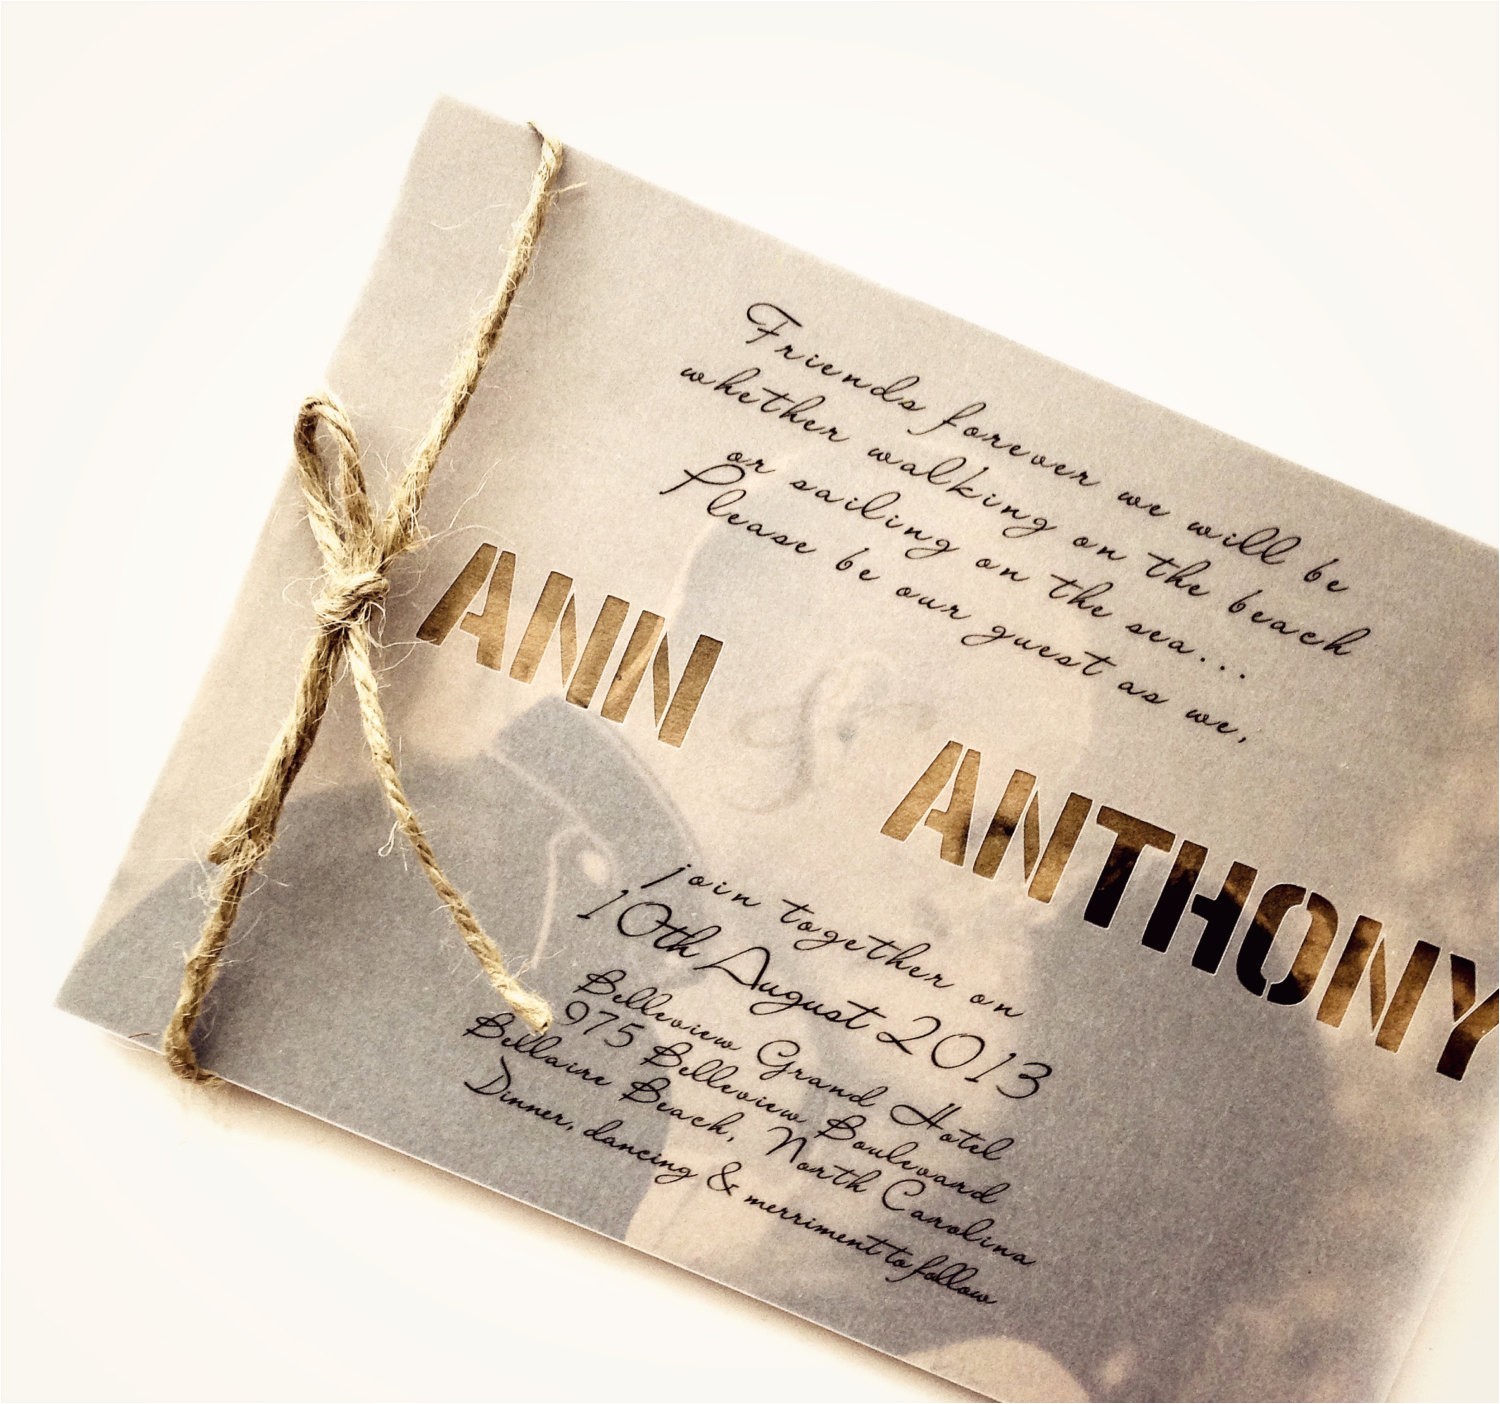 Friends forever we will be
whether walking on the beach
or sailing on the sea...
Please be our guest as we,
ANN & ANTHONY
join together on
10th August 2013
Belleview Grand Hotel
975 Belleview Boulevard
Bellaire Beach, North Carolina
Dinner, dancing & merriment to follow